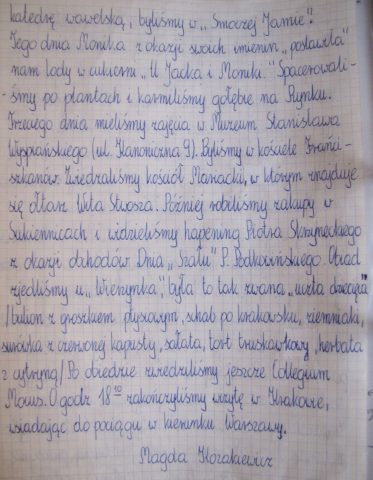 katedrę wawelską, byliśmy w „Smoczej Jamie".
Tego dnia Monika z okazji swoich imienin „postawiła"
nam lody w cukierni „U Jacka i Moniki." Spacerowali-
-śmy po plantach i karmiliśmy gołębie na Rynku.
Trzeciego dnia mieliśmy zajęcia w Muzeum Stanisława
Wyspiańskiego (ul. Kanoniczna 9). Byliśmy w kościele Franci-
szkanów. Zwiedzaliśmy kościół Mariacki, w którym znajduje
się ołtarz Wita Stwosza. Później robiliśmy zakupy w
Sukiennicach i widzieliśmy hapening Piotra Skrzyneckiego
z okazji obchodów Dnia „Szału" P. Podkowińskiego. Obiad
zjedliśmy u „Wierzynka", była to tak zwana „uczta dziecięca"
/bulion z groszkiem ptysiowym, schab po krakowsku, ziemniaki,
surówka z czerwonej kapusty, sałata, tort truskawkowy, herbata
z cytryną/ Po obiedzie zwiedzaliśmy jeszcze Collegium
Maius. O godz 18¹⁰ zakończyliśmy wizytę w Krakowie,
wsiadając do pociągu w kierunku Warszawy.
Magda Korakiewicz